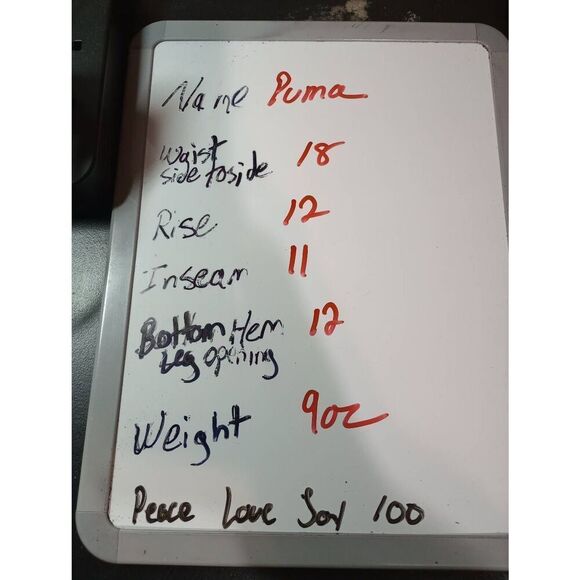 Name Puma
Waist 18
side to side
Rise 12
Inseam 11
Bottom Hem 12
Leg Opening
Weight 9oz
Peace Love Joy 100